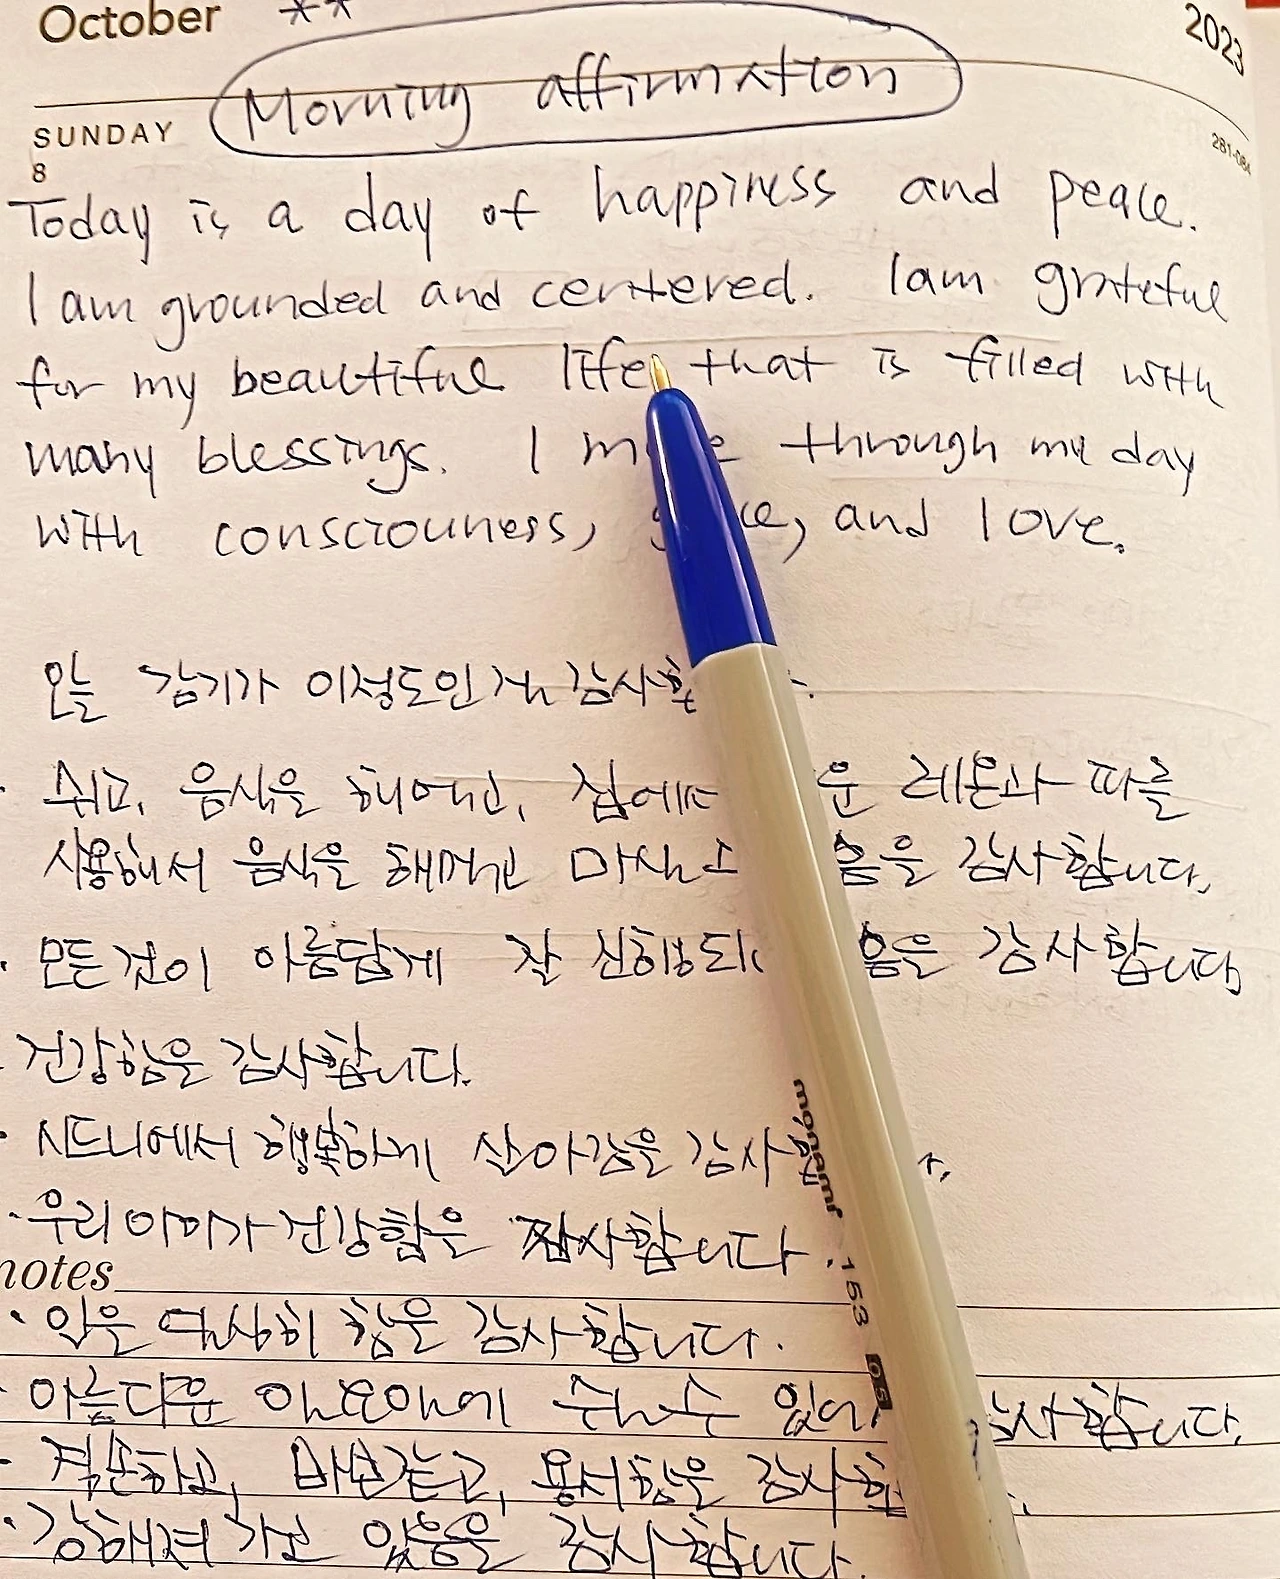 October **
2023
Morning affirmation
SUNDAY
8
281-084
Today is a day of happiness and peace.
I am grounded and centered. I am grateful
for my beautiful life that is filled with
many blessings. I through my day
with consciouness, and love.
오늘 감기가 이정도인거 감사
· 쉬고, 음식을 해먹고, 집에 레몬과 따를
사용해서 음식을 해먹고 감사합니다.
· 모든것이 아름답게 잘 감사합니다
· 건강함을 감사합니다.
· 시드니에서 행복하게 살아감을 감사
· 우리 건강함을 감사합니다.
notes
· 일을 열심히 함을 감사합니다.
· 아름다운 수 감사합니다.
· 용서함을 감사
· 강해져 가고 있음을 감사합니다.
monami 153 0.5